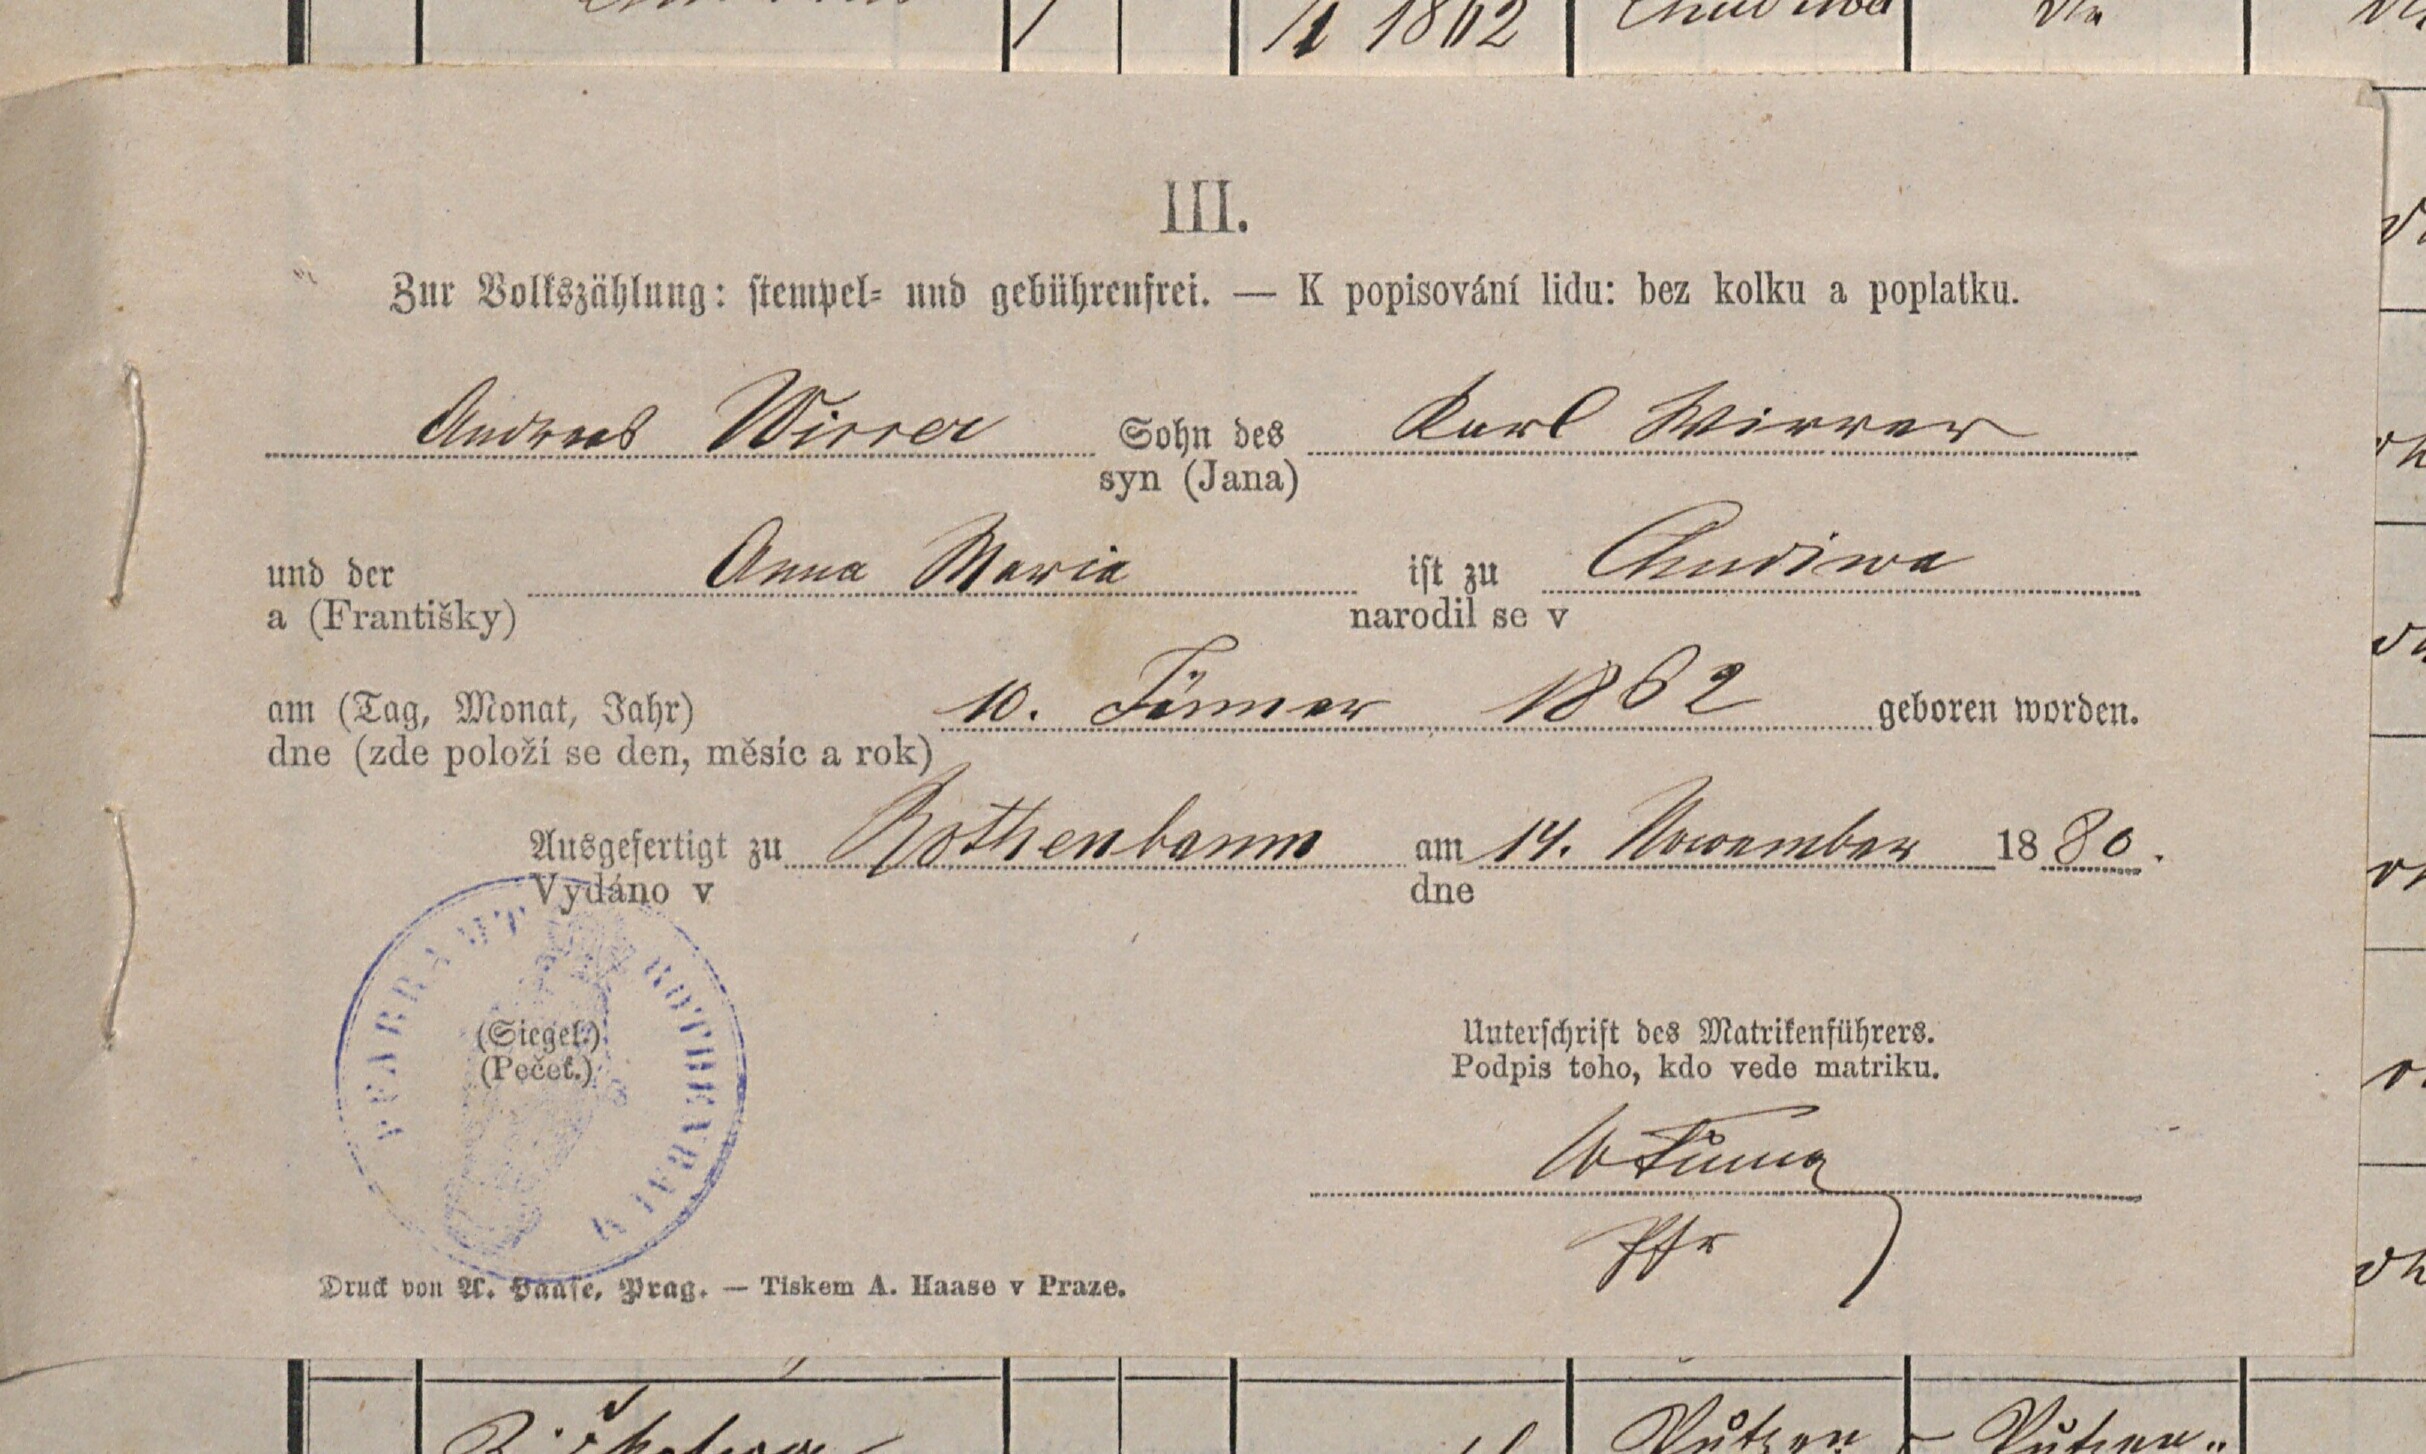 1862 Chudiwa
III.
Zur Volkszählung: stempel- und gebührenfrei. — K popisování lidu: bez kolku a poplatku.
Andreas Wirrer Sohn des Karl Wirrer
syn (Jana)
und der Anna Maria ist zu Chudiwa
a (Františky) narodil se v
am (Tag, Monat, Jahr) 10. Jänner 1862 geboren worden.
dne (zde položí se den, měsíc a rok)
Ausgefertigt zu Rothenbaum am 14. November 1880.
Vydáno v dne
PFARRAMT ROTHENBAUM
(Siegel.)
(Pečeť.)
Unterschrift des Matrikenführers.
Podpis toho, kdo vede matriku.
Pfr
Druck von A. Haase, Prag. — Tiskem A. Haase v Praze.